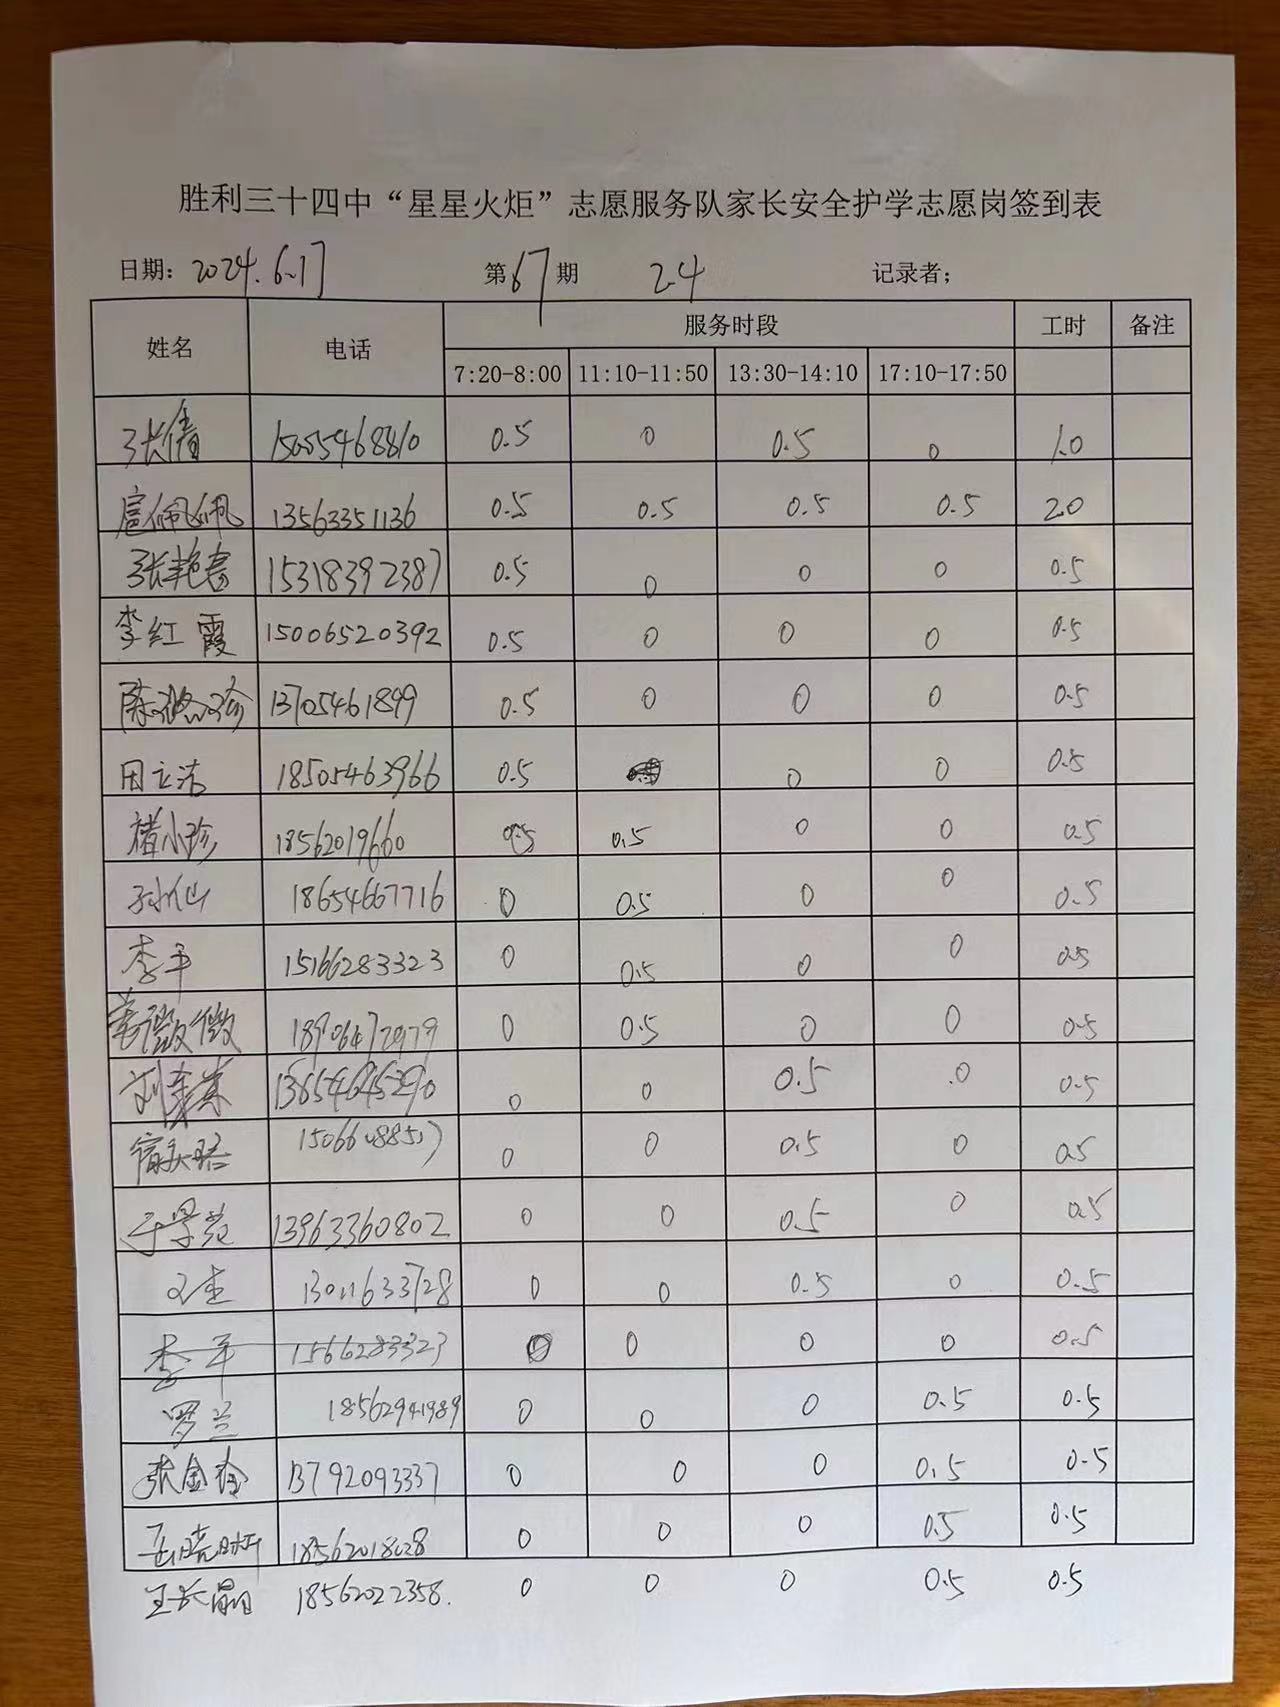 胜利三十四中“星星火炬”志愿服务队家长安全护学志愿岗签到表
日期: 2024.6.17 第67期 2.4 记录者;
姓名 电话 服务时段 工时 备注
7:20-8:00 11:10-11:50 13:30-14:10 17:10-17:50
张倩 15005468810 0.5 0 0.5 0 1.0
扈佩佩 13563351136 0.5 0.5 0.5 0.5 2.0
张艳春 15318392387 0.5 0 0 0 0.5
李红霞 15006520392 0.5 0 0 0 0.5
13705461899 0.5 0 0 0 0.5
田立洁 18505463966 0.5 0 0 0.5
褚小珍 18562019660 0.5 0.5 0 0 0.5
孙仙 18654667716 0 0.5 0 0 0.5
李平 15166283323 0 0.5 0 0 0.5
薇薇 18906472979 0 0.5 0 0 0.5
刘 13654645290 0 0 0.5 0 0.5
0 0 0.5 0 0.5
于景苑 13963360802 0 0 0.5 0 0.5
0 0 0.5 0 0.5
李平 1566283323 0 0 0 0 0.5
罗兰 18562941989 0 0 0 0.5 0.5
张金玲 13792093337 0 0 0 0.5 0.5
18562018028 0 0 0 0.5 0.5
王长晶 18562022358. 0 0 0 0.5 0.5